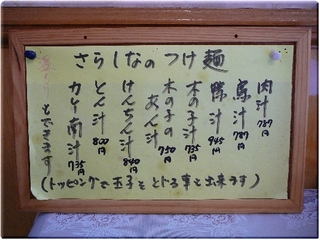 さらしなのつけ麺
肉汁 787円
鳥汁 787円
鴨汁 945円
木の子汁 735円
木の子のあん汁 750円
けんちん汁 840円
とん汁 800円
カレー南汁 735円
もできます
(トッピングで玉子もとじる事も出来ます)